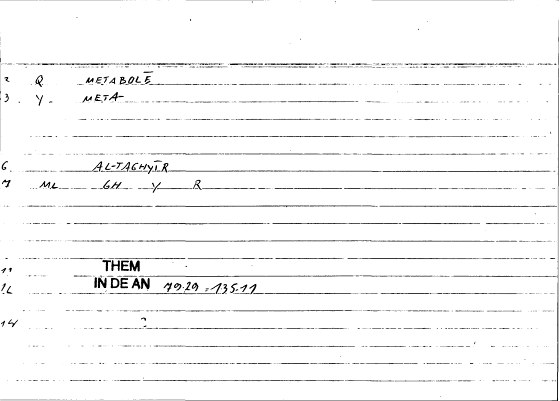 2 Q METABOLĒ
3. Y. META
6. AL-TAGHYĪR
7 ML GH Y R
11 THEM
12 IN DE AN 79.29 = 135.11
14 ?